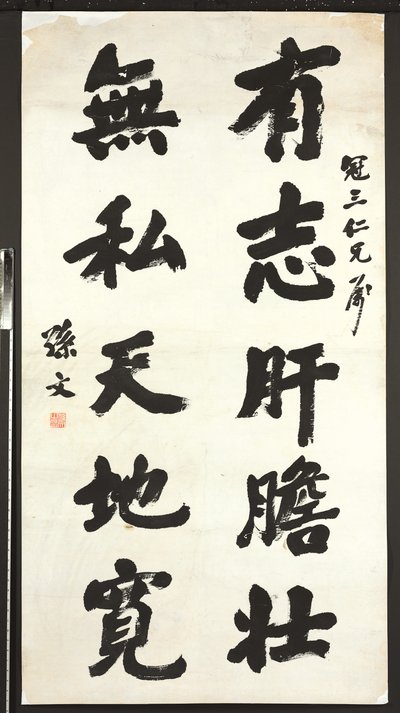 冠三仁兄屬
有志肝膽壯
無私天地寬
孫文